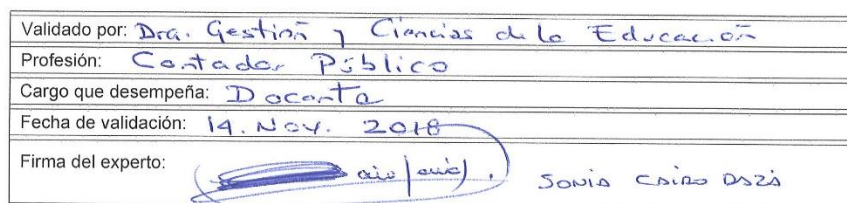 Validado por: Dra. Gestión y Ciencias de la Educación
Profesión: Contador Público
Cargo que desempeña: Docente
Fecha de validación: 14. Nov. 2018
Firma del experto: SONIA CAIRO DAZA